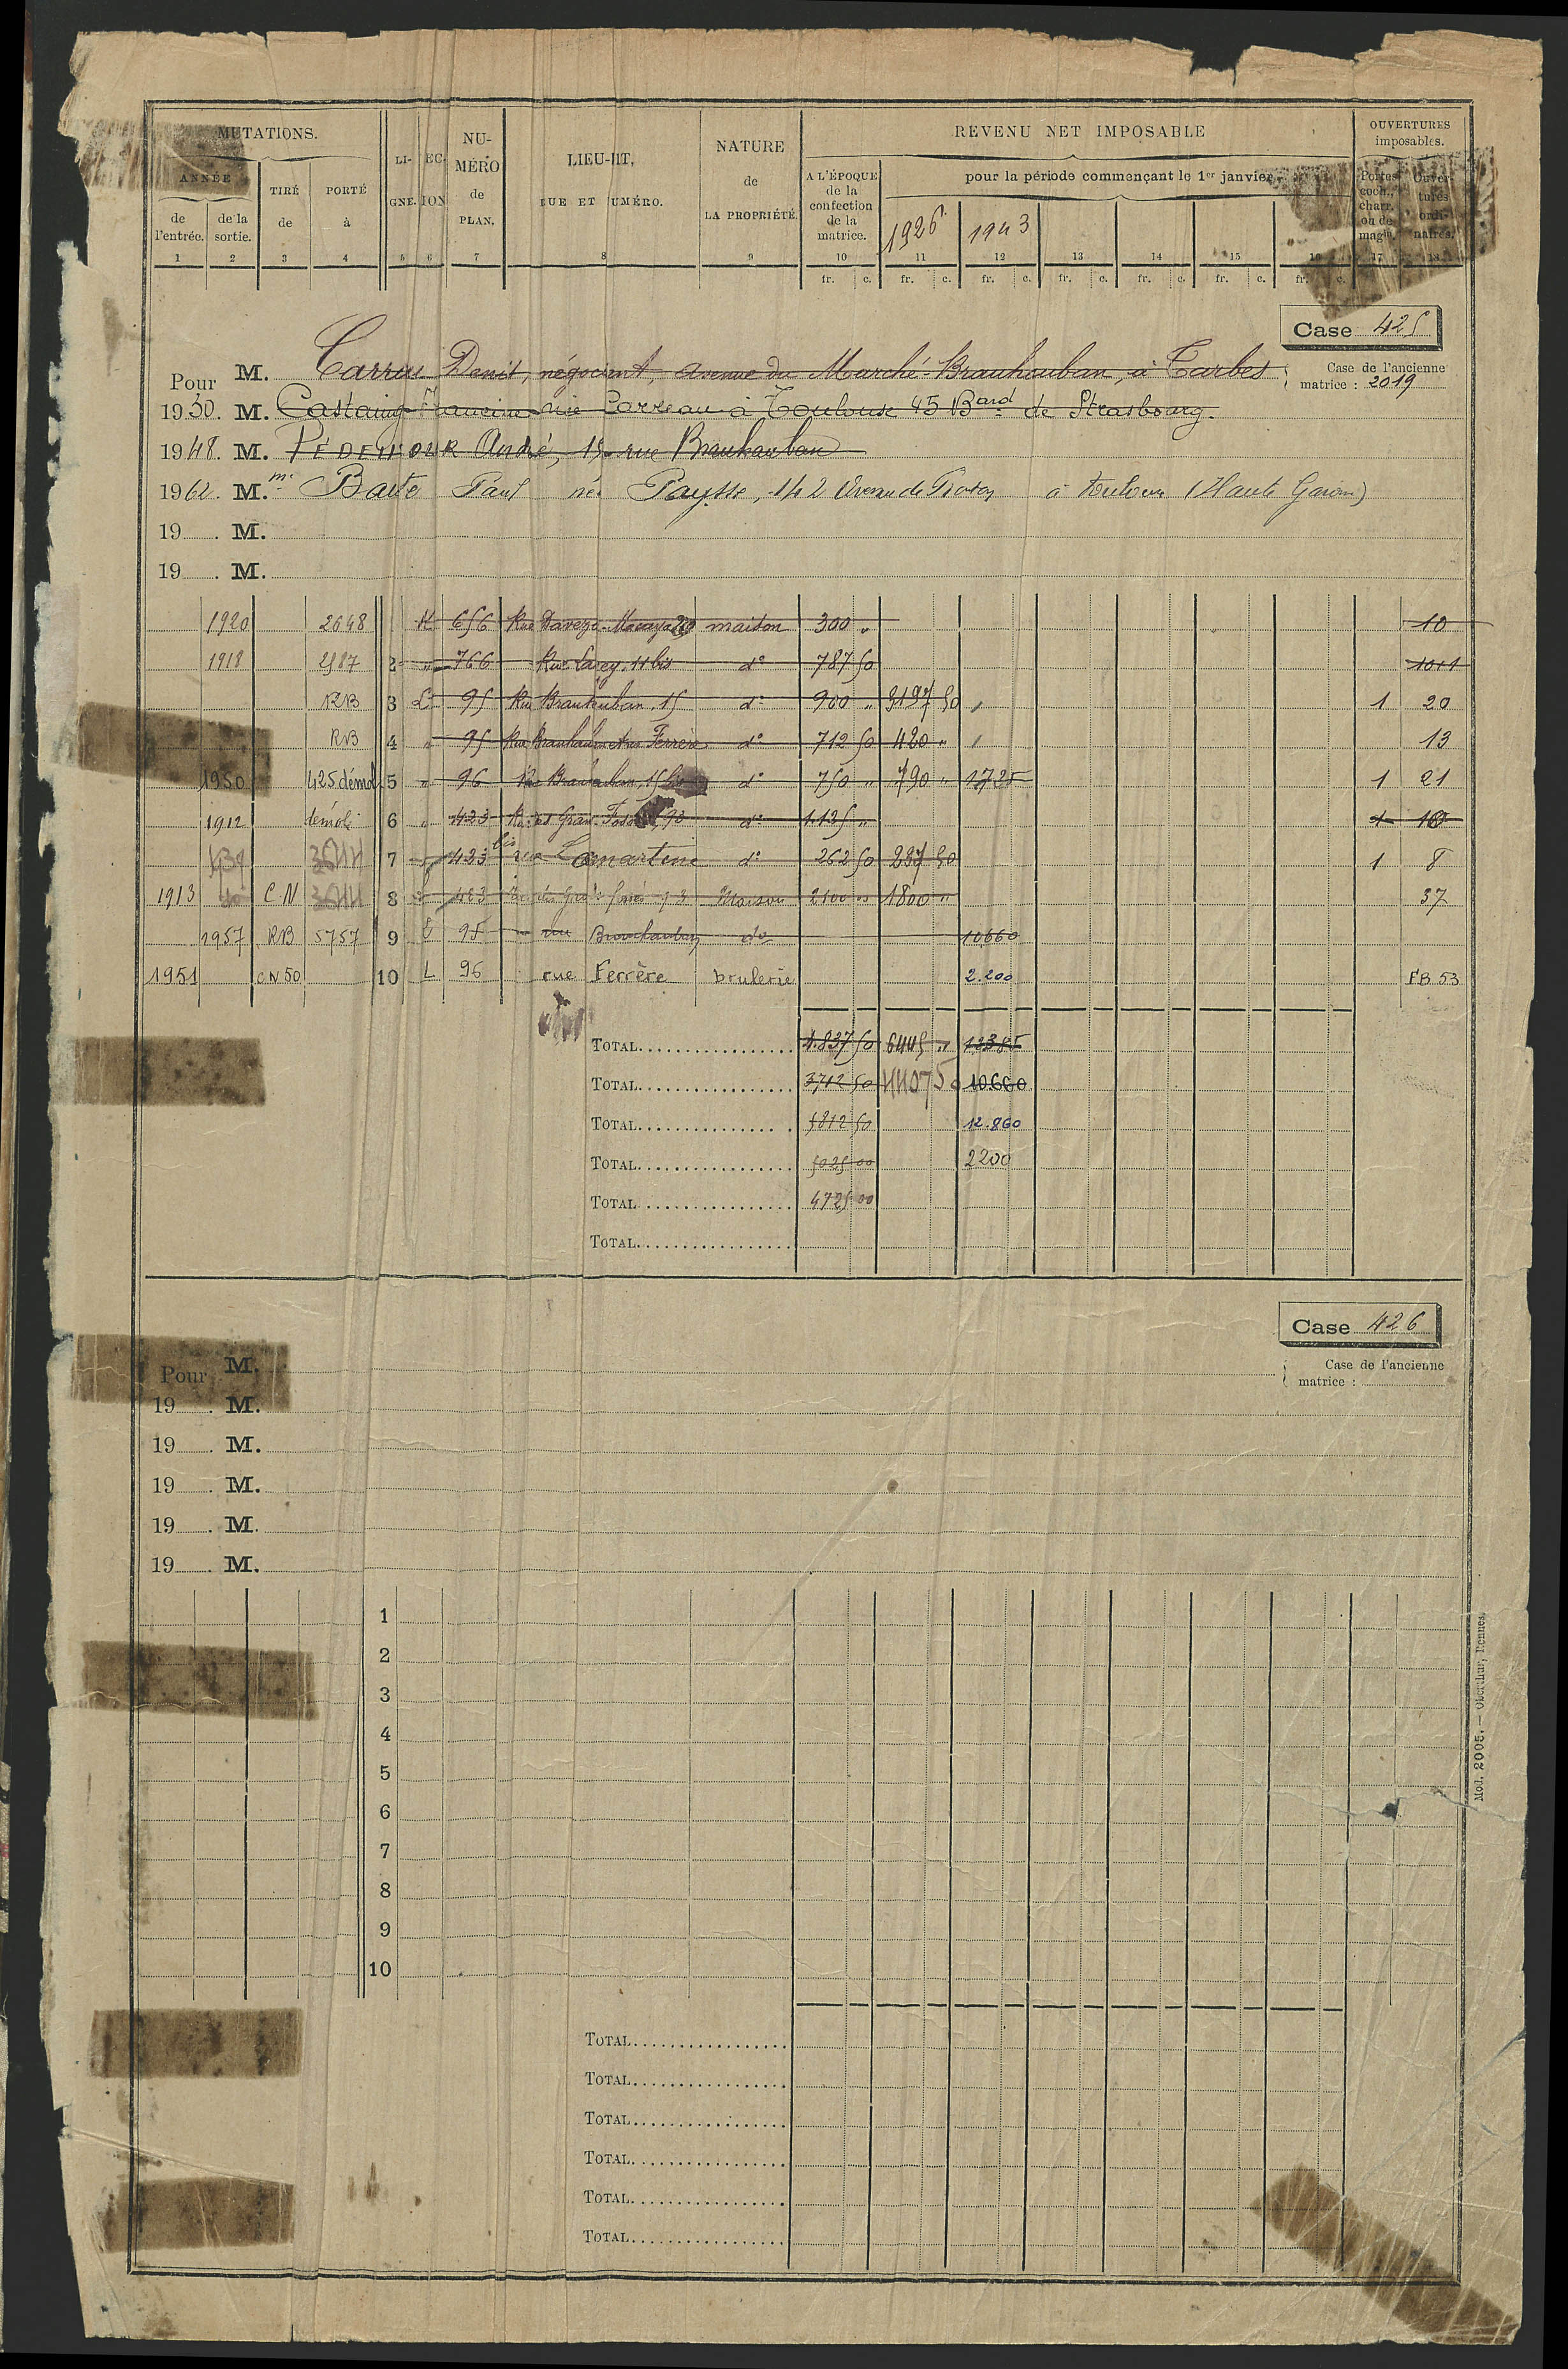 MUTATIONS.
ANNÉE
de l'entrée.
de la sortie.
TIRÉ de
PORTÉ à
LI-
GNE.
EC-
ION
NU-
MÉRO
de
PLAN.
LIEU-DIT,
RUE ET NUMÉRO.
NATURE
de
LA PROPRIÉTÉ.
REVENU NET IMPOSABLE
A L'ÉPOQUE
de la
confection
de la
matrice.
pour la période commençant le 1er janvier
1926 1943
OUVERTURES
imposables.
Portes
coch.,
charr.
ou de
magin.
Ouver-
tures
ordi-
naires.
1 2 3 4 5 6 7 8 9 10 11 12 13 14 15 16 17 18
fr. c. fr. c. fr. c. fr. c. fr. c. fr. c. fr. c.
Case 425
Case de l'ancienne
matrice : 2019
Pour M. Denis, négociant, avenue du Marché-Brauhauban, à Tarbes
1930. M. Castaing Francine née Carreau à Toulouse 45 Bard de Strasbourg.
1948. M. André, 15 rue Brauhauban
1962. M.me Paul née Paysse, 142 Avenue de à (Haute Garonne)
19 . M.
19 . M.
1920 2648 K 656 Rue maison 300 " 10
1918 2187 2 " 766 Rue Larrey, 11 bis do 787 50 10+1
RB 3 L 95 Rue Brauhauban, 15 do 900 " 3197 50 1 20
RB 4 " 95 Rue Brauhauban et rue Ferrère do 712 50 420 " 13
1950 425 démol 5 " 96 Rue Brauhauban, 15 bis do 750 " 790 " 1725 1 21
1912 démoli 6 " 423 Rue des Grands Fossés, 93 do 1.125 " 1 10
7 " 423 bis rue Lamartine do 262 50 237 50 1 8
1913 C.N 8 " 423 Maison 2100 " 1800 " 37
1957 RB 5757 9 L 95 rue Brauhauban do 10660
1951 CN 50 10 L 96 rue Ferrère brulerie 2.200 FB 53
TOTAL 4.837 50 6445 " 12385
TOTAL 3712 50 10.660
TOTAL 5812 50 12.860
TOTAL 5025 00 2200
TOTAL 4725 00
TOTAL
Case 426
Case de l'ancienne
matrice :
Pour M.
19 . M.
19 . M.
19 . M.
19 . M.
19 . M.
1
2
3
4
5
6
7
8
9
10
TOTAL
TOTAL
TOTAL
TOTAL
TOTAL
TOTAL
Mod. 2005. — Oberthur, Rennes.